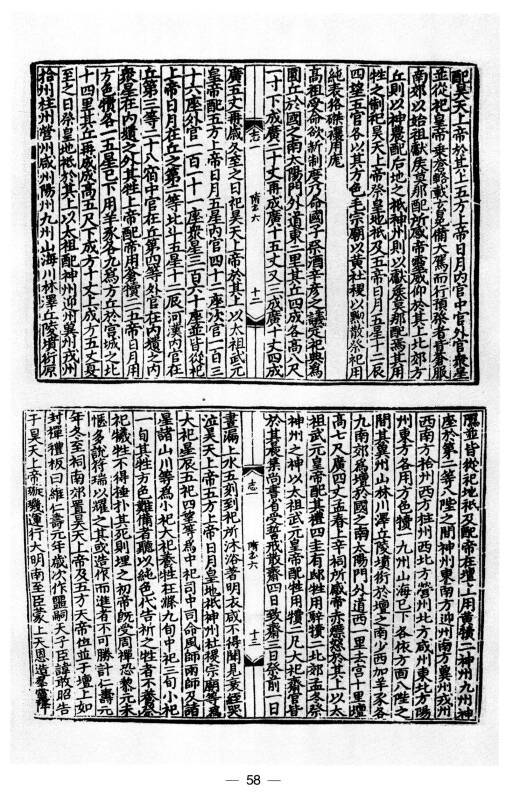 配昊天上帝於其上五方上帝日月內官中官外官衆星
並從祀皇帝乘蒼輅載玄冕備大駕而行預祭者皆蒼服
南郊以始祖獻侯莫那配所感帝靈威仰於其上北郊方
丘則以神農配后地之祇神州則以獻侯莫那配焉其用
牲之制祀昊天上帝祭皇地祇及五帝日月五星十二辰
四望五官各以其方色毛宗廟以黃社稷以黝散祭祀用
純表狢磔禳用厖
高祖受命欲新制度乃命國子祭酒辛彥之議定祀典爲
圜丘於國之南太陽門外道東二里其丘四成各高八尺
一寸下成廣二十丈再成廣十五丈又三成廣十丈四成
隋志六
十二
廣五丈再歲冬至之日祀昊天上帝於其上以太祖武元
皇帝配五方上帝日月五星內官四十二座次官一百三
十六座外官一百一十一座衆星三百六十座並皆從祀
上帝日月在丘之第二等北斗五星十二辰河漢內官在
丘第三等二十八宿中官在丘第四等外官在內壝之內
衆星在內壝之外其牲上帝配帝用蒼犢二五帝日月用
方色犢各一五星已下用羊豕各九爲方丘於宮城之北
十四里其丘再成成高五尺下成方十丈上成方五丈夏
至之日祭皇地祇於其上以太祖配神州迎州冀州戎州
拾州柱州營州咸州陽州九州山海川林澤丘陵墳衍原
隰並皆從祀地祇及配帝在壇上用黃犢二神州九州神
座於第二等八陛之間神州東南方迎州南方冀州戎州
西南方拾州西方柱州西北方營州北方咸州東北方陽
州東方各用方色犢一九州山海已下各依方面八陛之
間其冀州山林川澤丘陵墳衍於壇之南少西加羊豕各
九南郊爲壇於國之南太陽門外道西一里去宮十里壇
高七尺廣四丈孟春上辛祠所感帝赤熛怒於其上以太
祖武元皇帝配其禮四圭有邸牲用騂犢二北郊孟冬祭
神州之神以太祖武元皇帝配牲用犢二凡大祀齋官皆
於其晨集尚書省受誓戒散齋四日致齋三日祭前一日
志
隋志六
十三
晝漏上水五刻到祀所沐浴著明衣咸不得聞見衰絰哭
泣昊天上帝五方上帝日月皇地祇神州社稷宗廟等爲
大祀星辰五祀四望等爲中祀司中司命風師雨師及諸
星諸山川等爲小祀大祀養牲在滌九旬中祀三旬小祀
一旬其牲方色難備者聽以純色代告祈之牲者不養祭
祀犧牲不得捶扑其死則埋之初帝既受周禪恐黎元未
愜多說符瑞以耀之其或造作而進者不可勝計仁壽元
年冬至祠南郊置昊天上帝及五方天帝位並于壇上如
封禪禮板曰維仁壽元年歲次作噩嗣天子臣諱敢昭告
于昊天上帝璇璣運行大明南至臣蒙上天恩造羣靈降
— 58 —